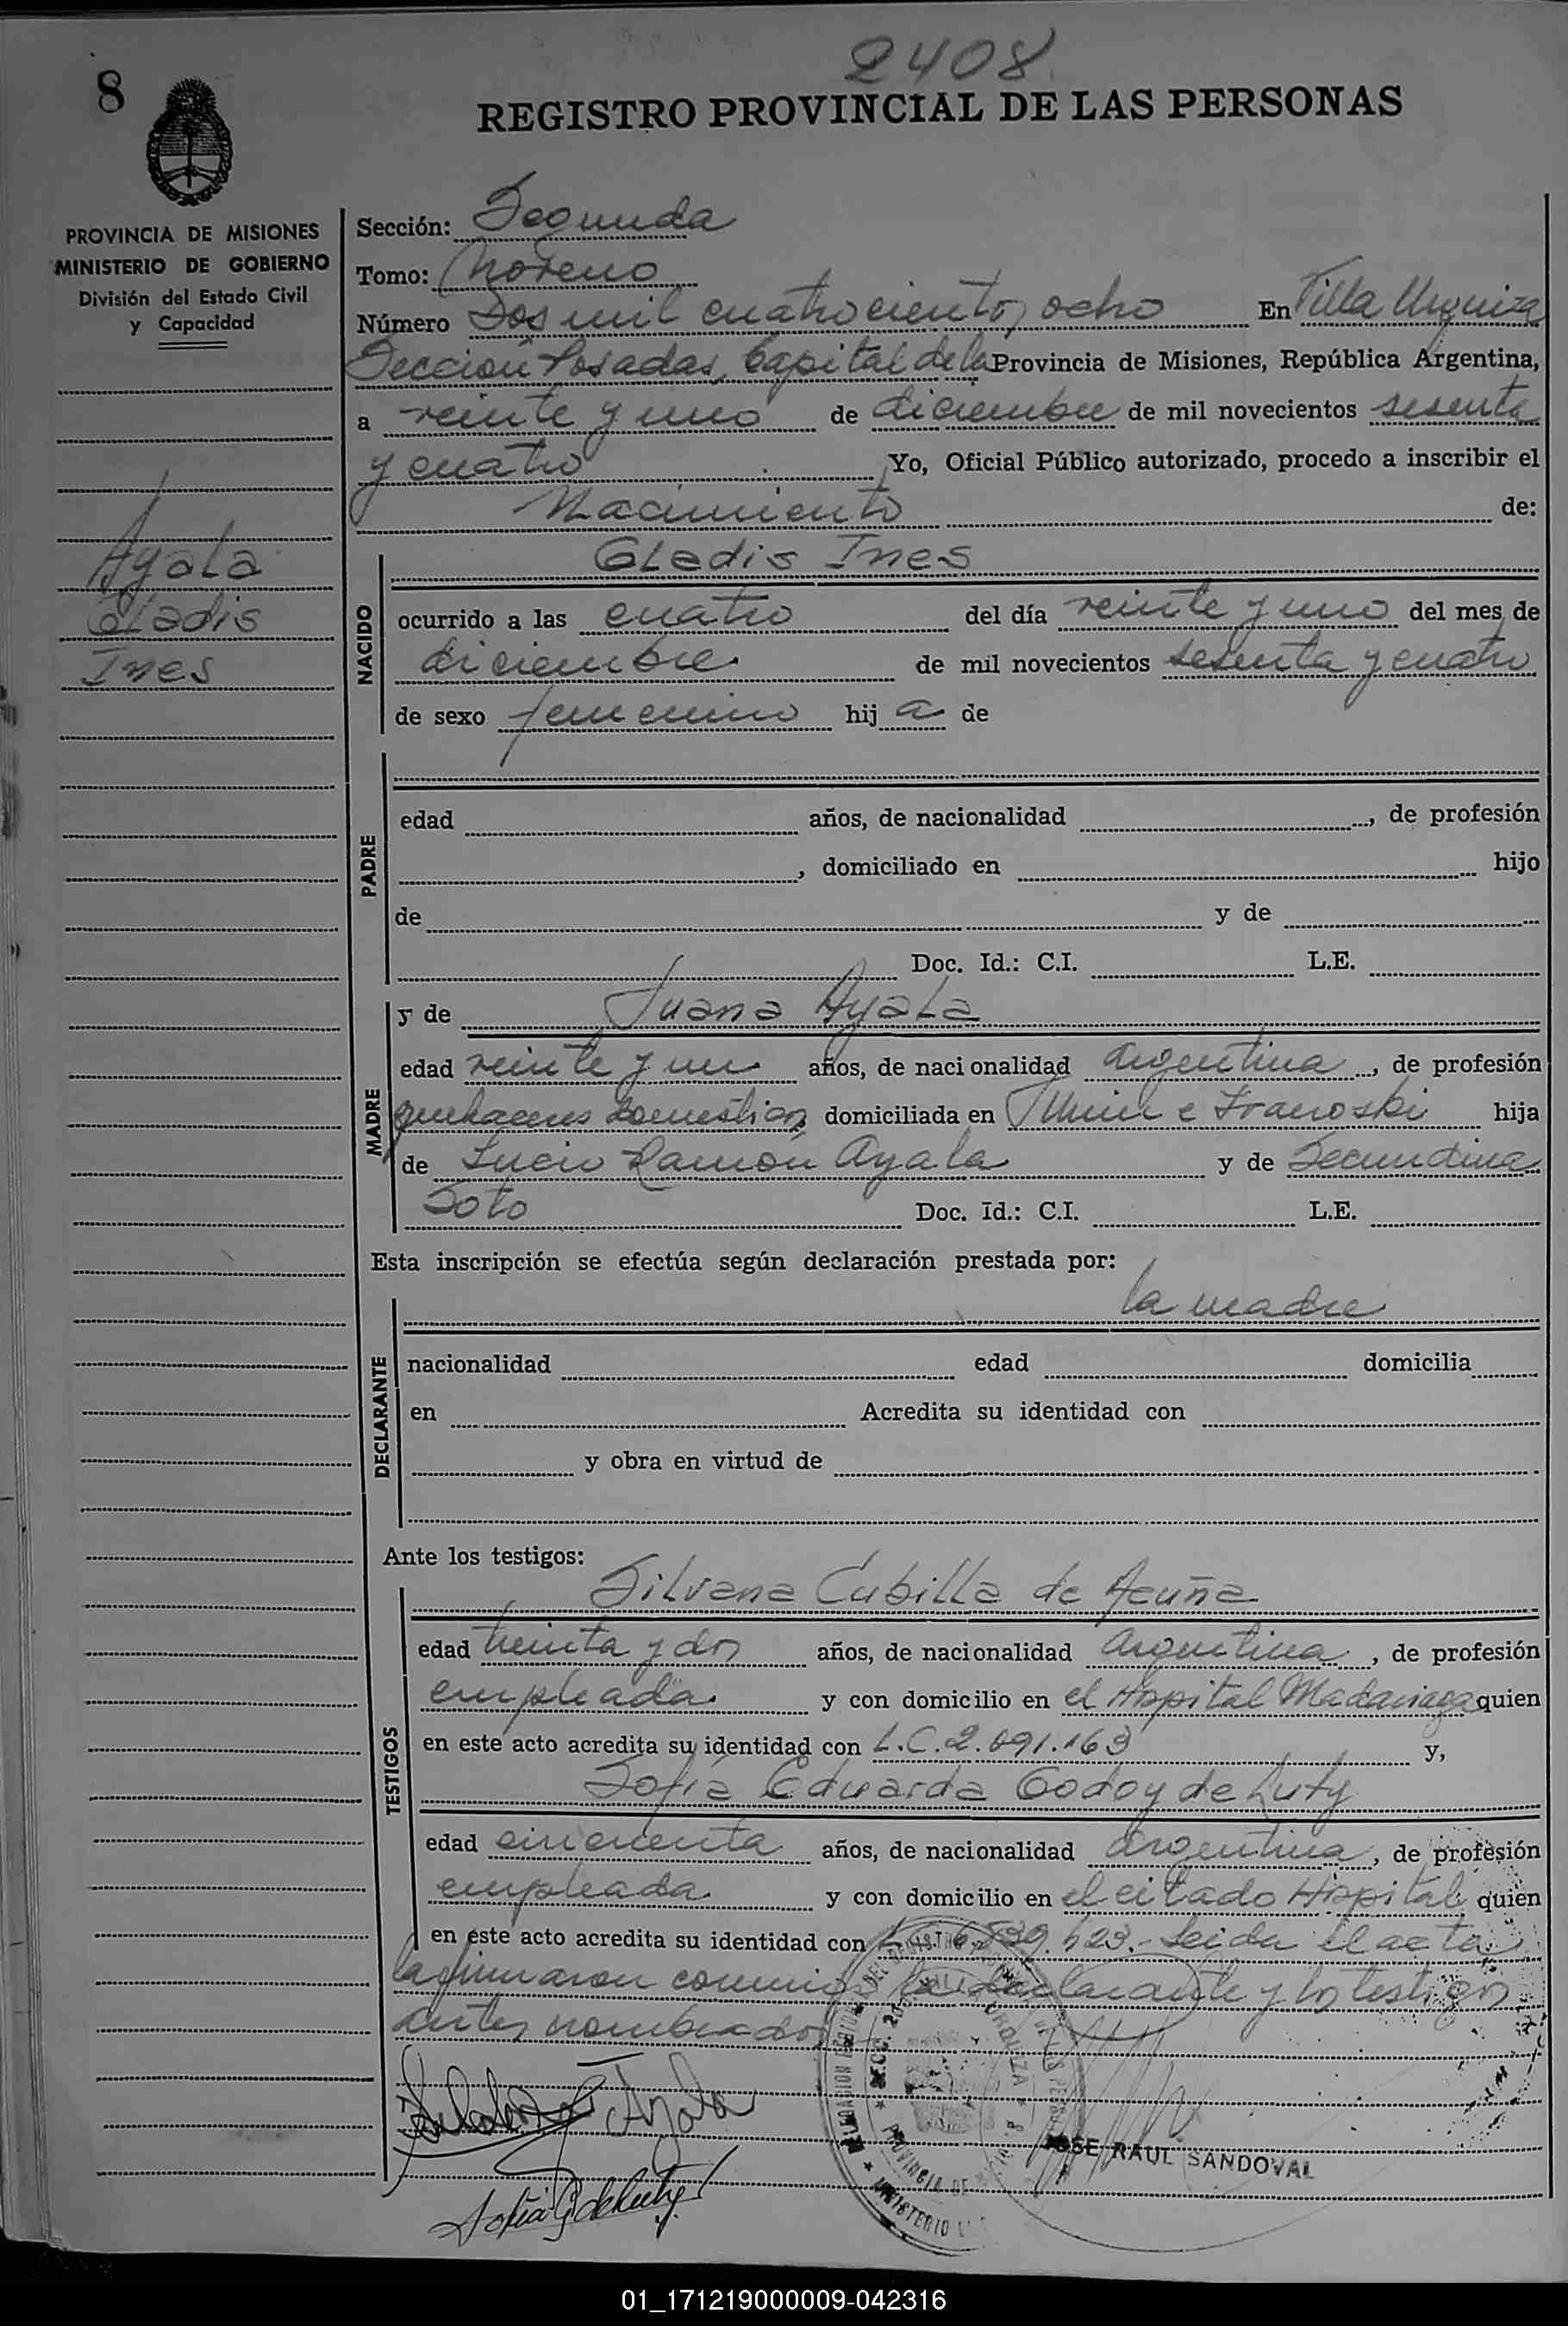 2408
8
REGISTRO PROVINCIAL DE LAS PERSONAS
PROVINCIA DE MISIONES
MINISTERIO DE GOBIERNO
División del Estado Civil
y Capacidad
Ayala
Gladis
Ines
Sección: Segunda
Tomo: Moreno
Número Dos mil cuatrocientos ocho En Villa Urquiza
Sección Posadas, Capital de la Provincia de Misiones, República Argentina,
a veinte y uno de diciembre de mil novecientos sesenta
y cuatro Yo, Oficial Público autorizado, procedo a inscribir el
Nacimiento de:
NACIDO
Gladis Ines
ocurrido a las cuatro del día veinte y uno del mes de
diciembre de mil novecientos sesenta y cuatro
de sexo femenino hij a de
PADRE
edad años, de nacionalidad , de profesión
, domiciliado en hijo
de y de
Doc. Id.: C.I. L.E.
MADRE
y de Juana Ayala
edad veinte y un años, de nacionalidad argentina, de profesión
quehaceres domesticos domiciliada en e hija
de Lucio Ramon Ayala y de Secundina
Soto Doc. Id.: C.I. L.E.
Esta inscripción se efectúa según declaración prestada por:
la madre
DECLARANTE
nacionalidad edad domicilia
en Acredita su identidad con
y obra en virtud de
Ante los testigos:
TESTIGOS
Silvana Cubilla de Acuña
edad treinta y dos años, de nacionalidad argentina, de profesión
empleada. y con domicilio en el Hospital Madariaga quien
en este acto acredita su identidad con L.C. 2.691.163 y,
Sofía Eduarda Godoy de Luty
edad cincuenta años, de nacionalidad argentina, de profesión
empleada. y con domicilio en el citado Hospital quien
en este acto acredita su identidad con Leida el acta
la firmaron conmigo la declarante y los testigos
antes nombrados
Ayala
Sofia G de Luty
JOSE RAUL SANDOVAL
01_171219000009-042316